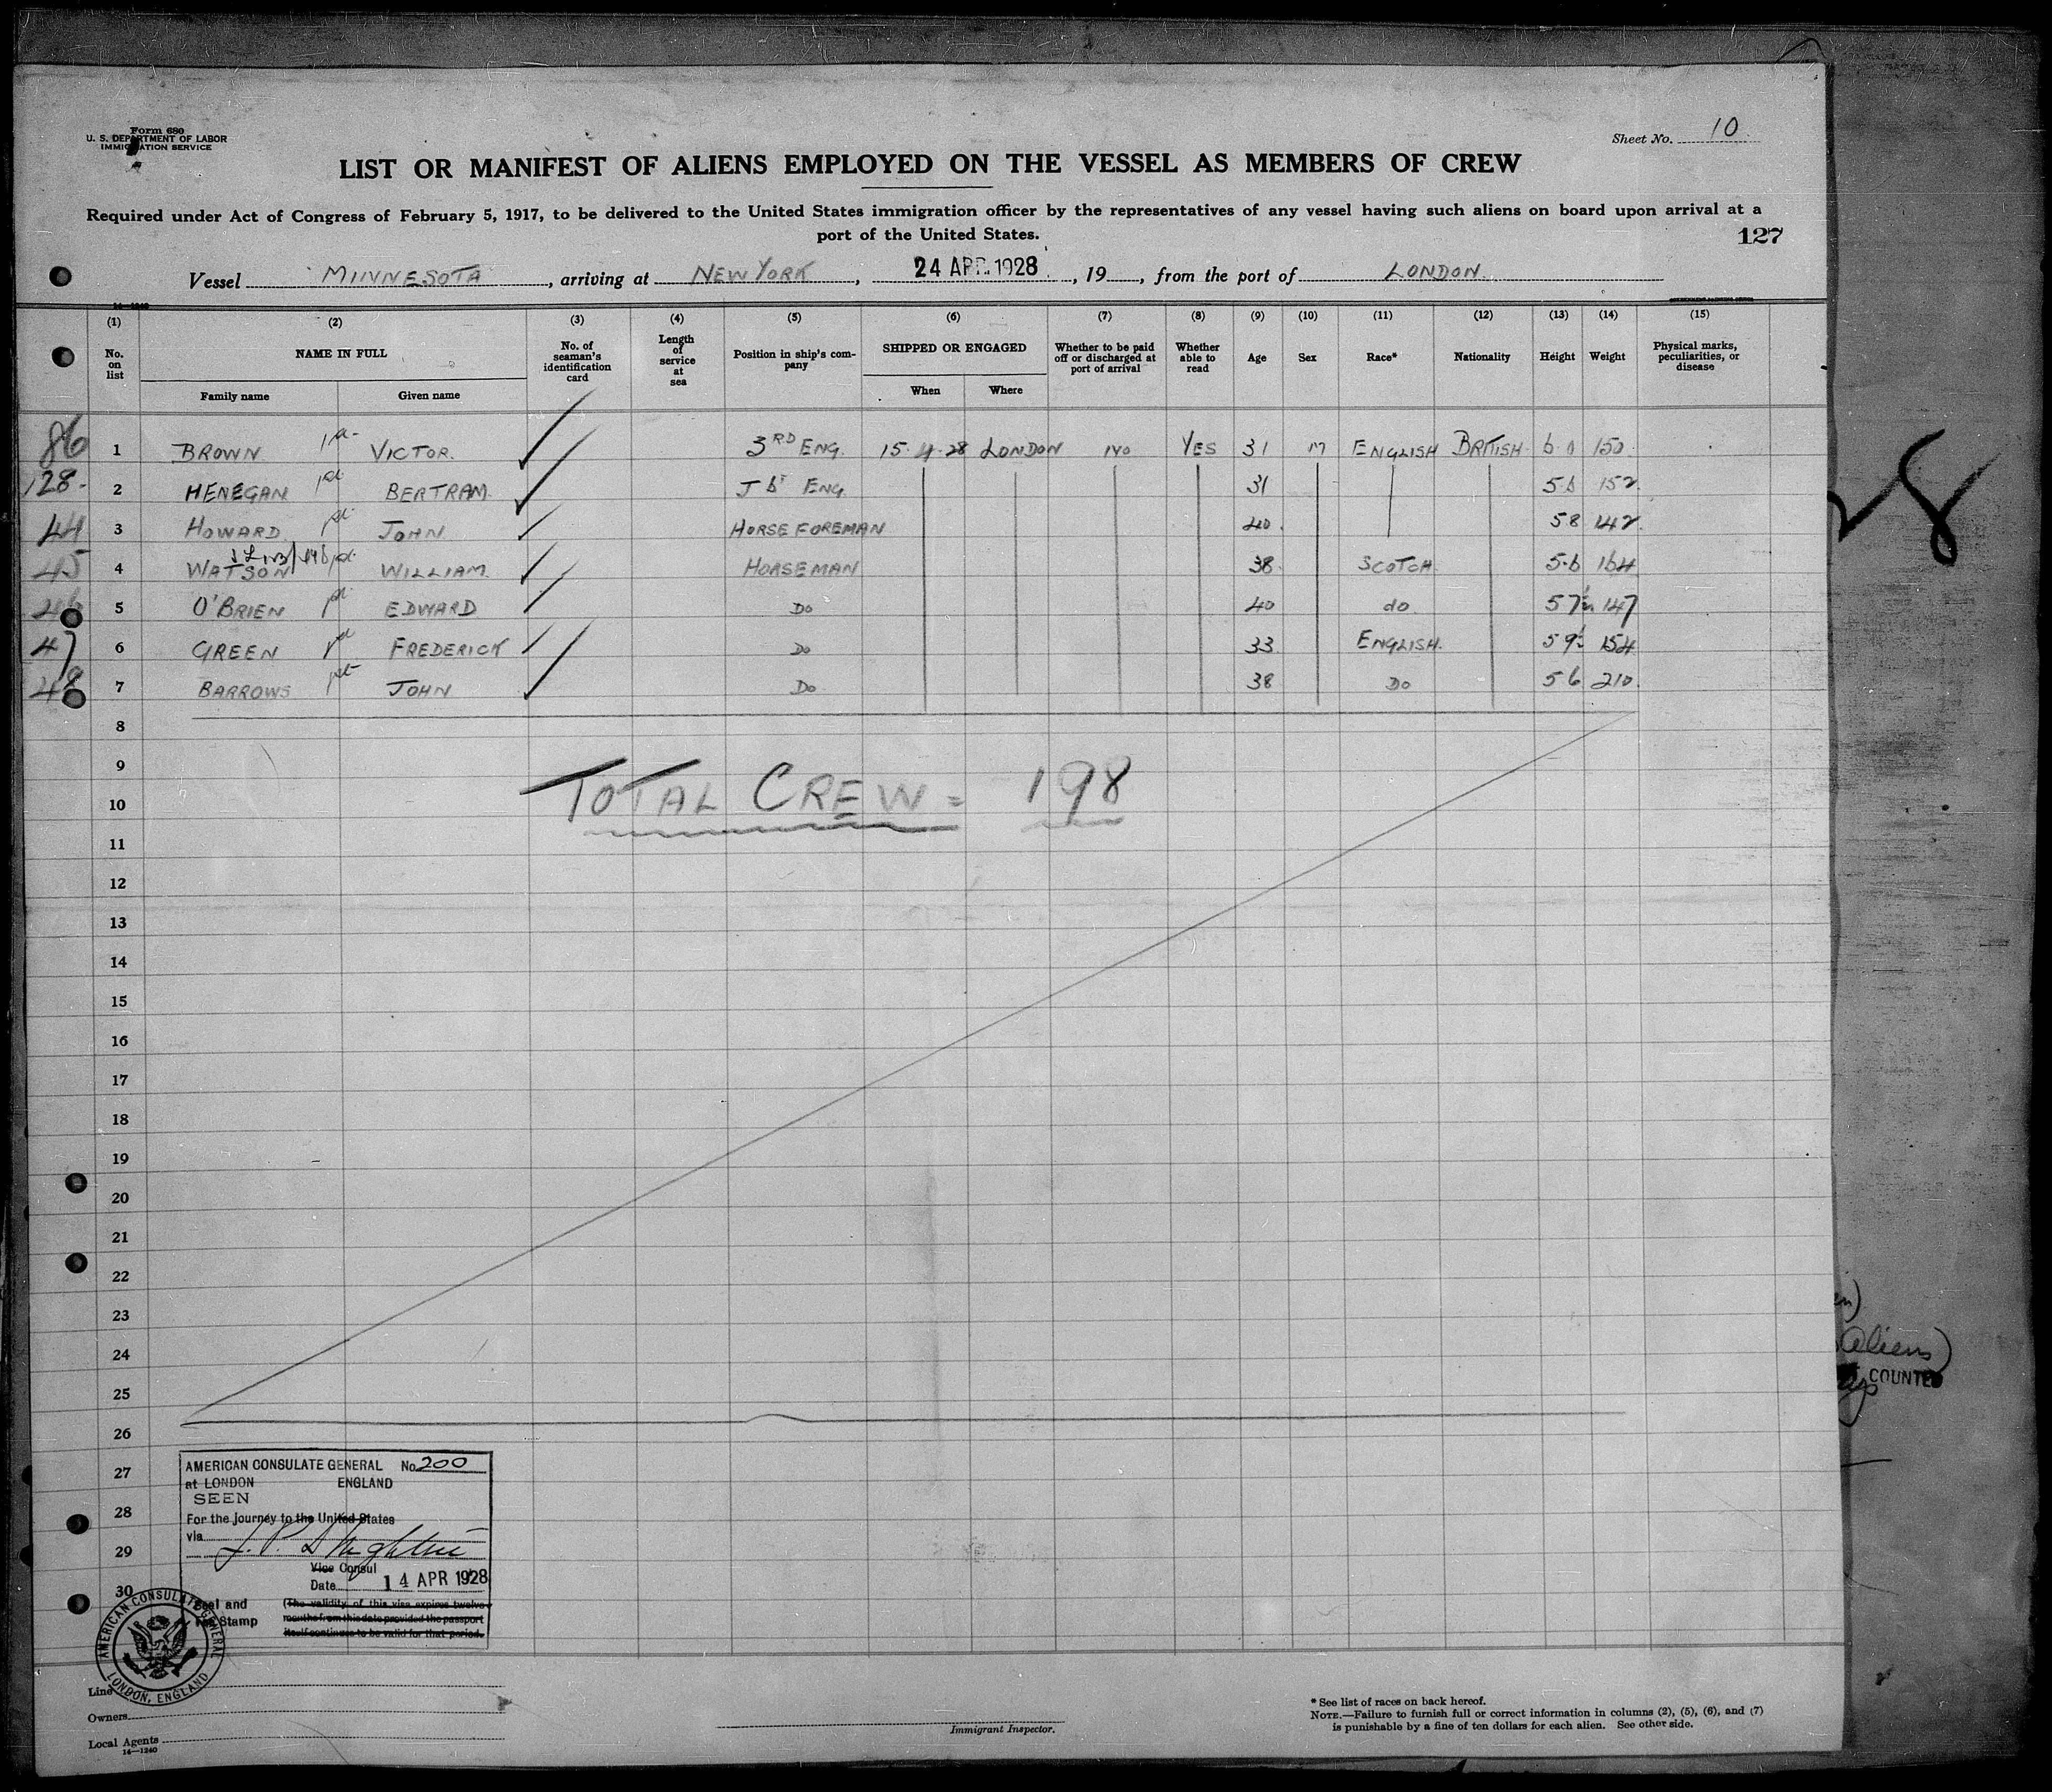 Form 680
U. S. DEPARTMENT OF LABOR
IMMIGRATION SERVICE
Sheet No. 10
LIST OR MANIFEST OF ALIENS EMPLOYED ON THE VESSEL AS MEMBERS OF CREW
Required under Act of Congress of February 5, 1917, to be delivered to the United States immigration officer by the representatives of any vessel having such aliens on board upon arrival at a
port of the United States.
127
Vessel MINNESOTA, arriving at NEW YORK, 24 APR. 1928, 19, from the port of LONDON.
(1) (2) (3) (4) (5) (6) (7) (8) (9) (10) (11) (12) (13) (14) (15)
No. on list NAME IN FULL No. of seaman's identification card Length of service at sea Position in ship's company SHIPPED OR ENGAGED Whether to be paid off or discharged at port of arrival Whether able to read Age Sex Race* Nationality Height Weight Physical marks, peculiarities, or disease
Family name Given name When Where
86 1 BROWN VICTOR. 3RD ENG. 15.4.28 LONDON NO YES 31 M ENGLISH BRITISH 6.0 150
128 2 HENEGAN BERTRAM. ENG. 31 5 6 152
44 3 HOWARD JOHN HORSE FOREMAN 40 5 8 142
45 4 WATSON WILLIAM. HORSEMAN 38 SCOTCH 5.6 164
46 5 O'BRIEN EDWARD DO 40 do 5 7½ 147
47 6 GREEN FREDERICK DO 33 ENGLISH. 5 9½ 154
48 7 BARROWS JOHN DO 38 DO 5 6 210
8
9
10
TOTAL CREW = 198
11
12
13
14
15
16
17
18
19
20
21
22
23
24
25
26
27
28
29
30
AMERICAN CONSULATE GENERAL No. 200
at LONDON ENGLAND
SEEN
For the journey to the United States
via
Vice Consul
Date 14 APR 1928
Seal and
Fee Stamp
(The validity of this visa expires twelve
months from this date provided the passport
itself continues to be valid for that period.
AMERICAN CONSULATE GENERAL
LONDON, ENGLAND
Line
Owners
Local Agents
14—1240
Immigrant Inspector.
* See list of races on back hereof.
NOTE.—Failure to furnish full or correct information in columns (2), (5), (6), and (7)
is punishable by a fine of ten dollars for each alien. See other side.
Aliens)
COUNTED